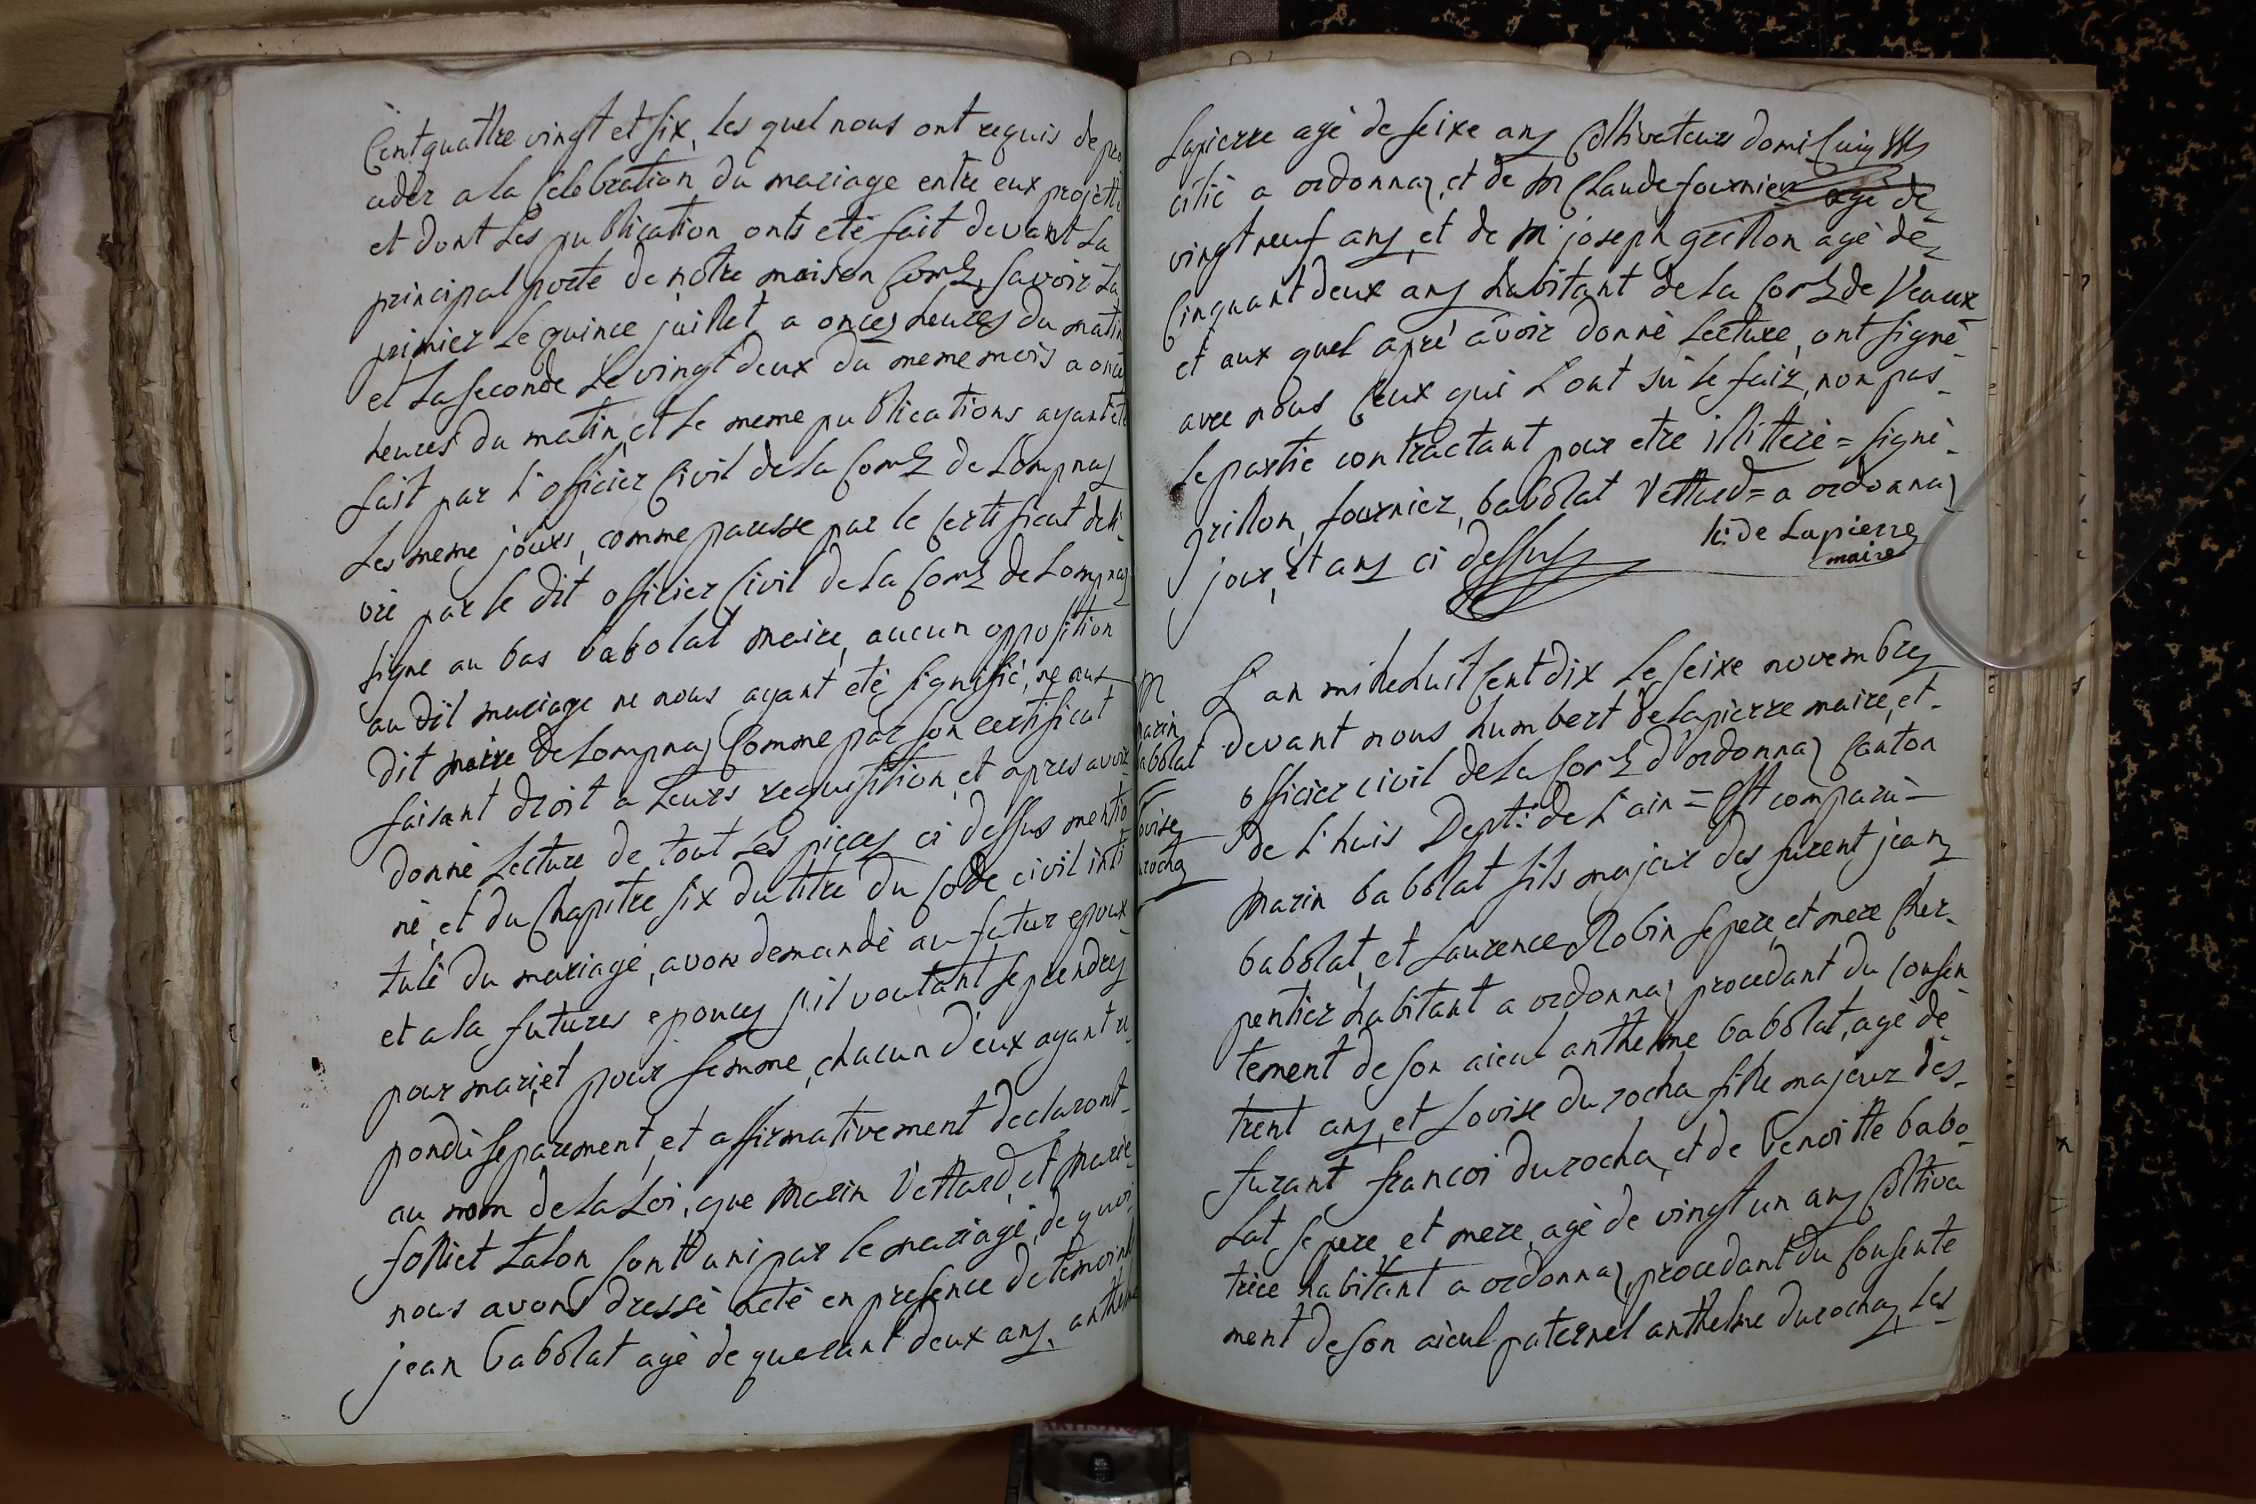 Cent quattre vingt et six, les quel nous ont requis de pro
ceder a la Celebration du mariage entre eux projetté
et dont Les publication onts eté fait devant La
principal porte de notre maison Com.e, savoir La
primier Le quince juillet a onces heures du matin
et La seconde Le vingt deux du meme mois a once
heures du matin, et Le meme publications ayant eté
fait par L'officier Civil de La Com.e de Lompnaz
Les meme jours, comme parusse par le Certificat deli-
vré par le dit officier Civil de La Com.e de Lompnaz
signe au bas babolat maire, aucun opposition
au dit mariage ne nous ayant eté signifié, ne aus
dit maire de Lompnaz Comme par son certificat
faisant droit a Leurs requisition, et apres avoir
donné Lecture de tout Les pieces ci dessus mentio
né, et du Chapitre six du titre du Code civil inti
tulé du mariage, avons demandé au futur epoux
et a la futures epouces s'il voulant se prendres
pour mari, et pour femme, chacun d'eux ayant re-
pondu separement, et affirmativement declaront-
au nom de La Loi, que marin Vettard, et marie
folliet talon sont uni par le mariage, de quoi
nous avons dressé acte en presence de temoins
jean babolat agé de quarant deux ans, anthelme
Lapierre agé de seixe ans Cultivateurs domi
cilié a ordonnaz, et de Mr Claude fournier agé de
vingt neuf ans, et de Mr joseph grillon agé de
Cinquant deux ans habitant de La Com.e de Veaux
et aux quel apré avoir donné Lecture, ont signé
avec nous Ceux qui L'ont sù le fair, non pas-
le partie contractant pour etre illitteré = signé
grillon, fournier, babolat Vettard = a ordonnaz
jour, et ans ci dessus
h: de Lapierre
maire
M
marin
babolat
Lovise
durocha
L'an mille huit Cent dix Le seixe novembre
devant nous humbert de Lapierre maire, et-
officier civil de La Com.e d'ordonnaz Canton
de L'huis Dept: de L'ain = est comparù-
Marin babolat fils majeur des furent jean
babolat, et Laurence Robin se pere, et mere Cher-
pentier habitant a ordonnaz procedant du Consen
tement de son aieul anthelme babolat, agé de
trent ans, et Lovise du rocha fille majeur des-
furant francoi durocha, et de benoitte babo-
Lat se pere, et mere, agé de vingt un ans Coltiva
trice habitant a ordonnaz, procedant du Consente
ment de son aieul paternel anthelme durocha, Les